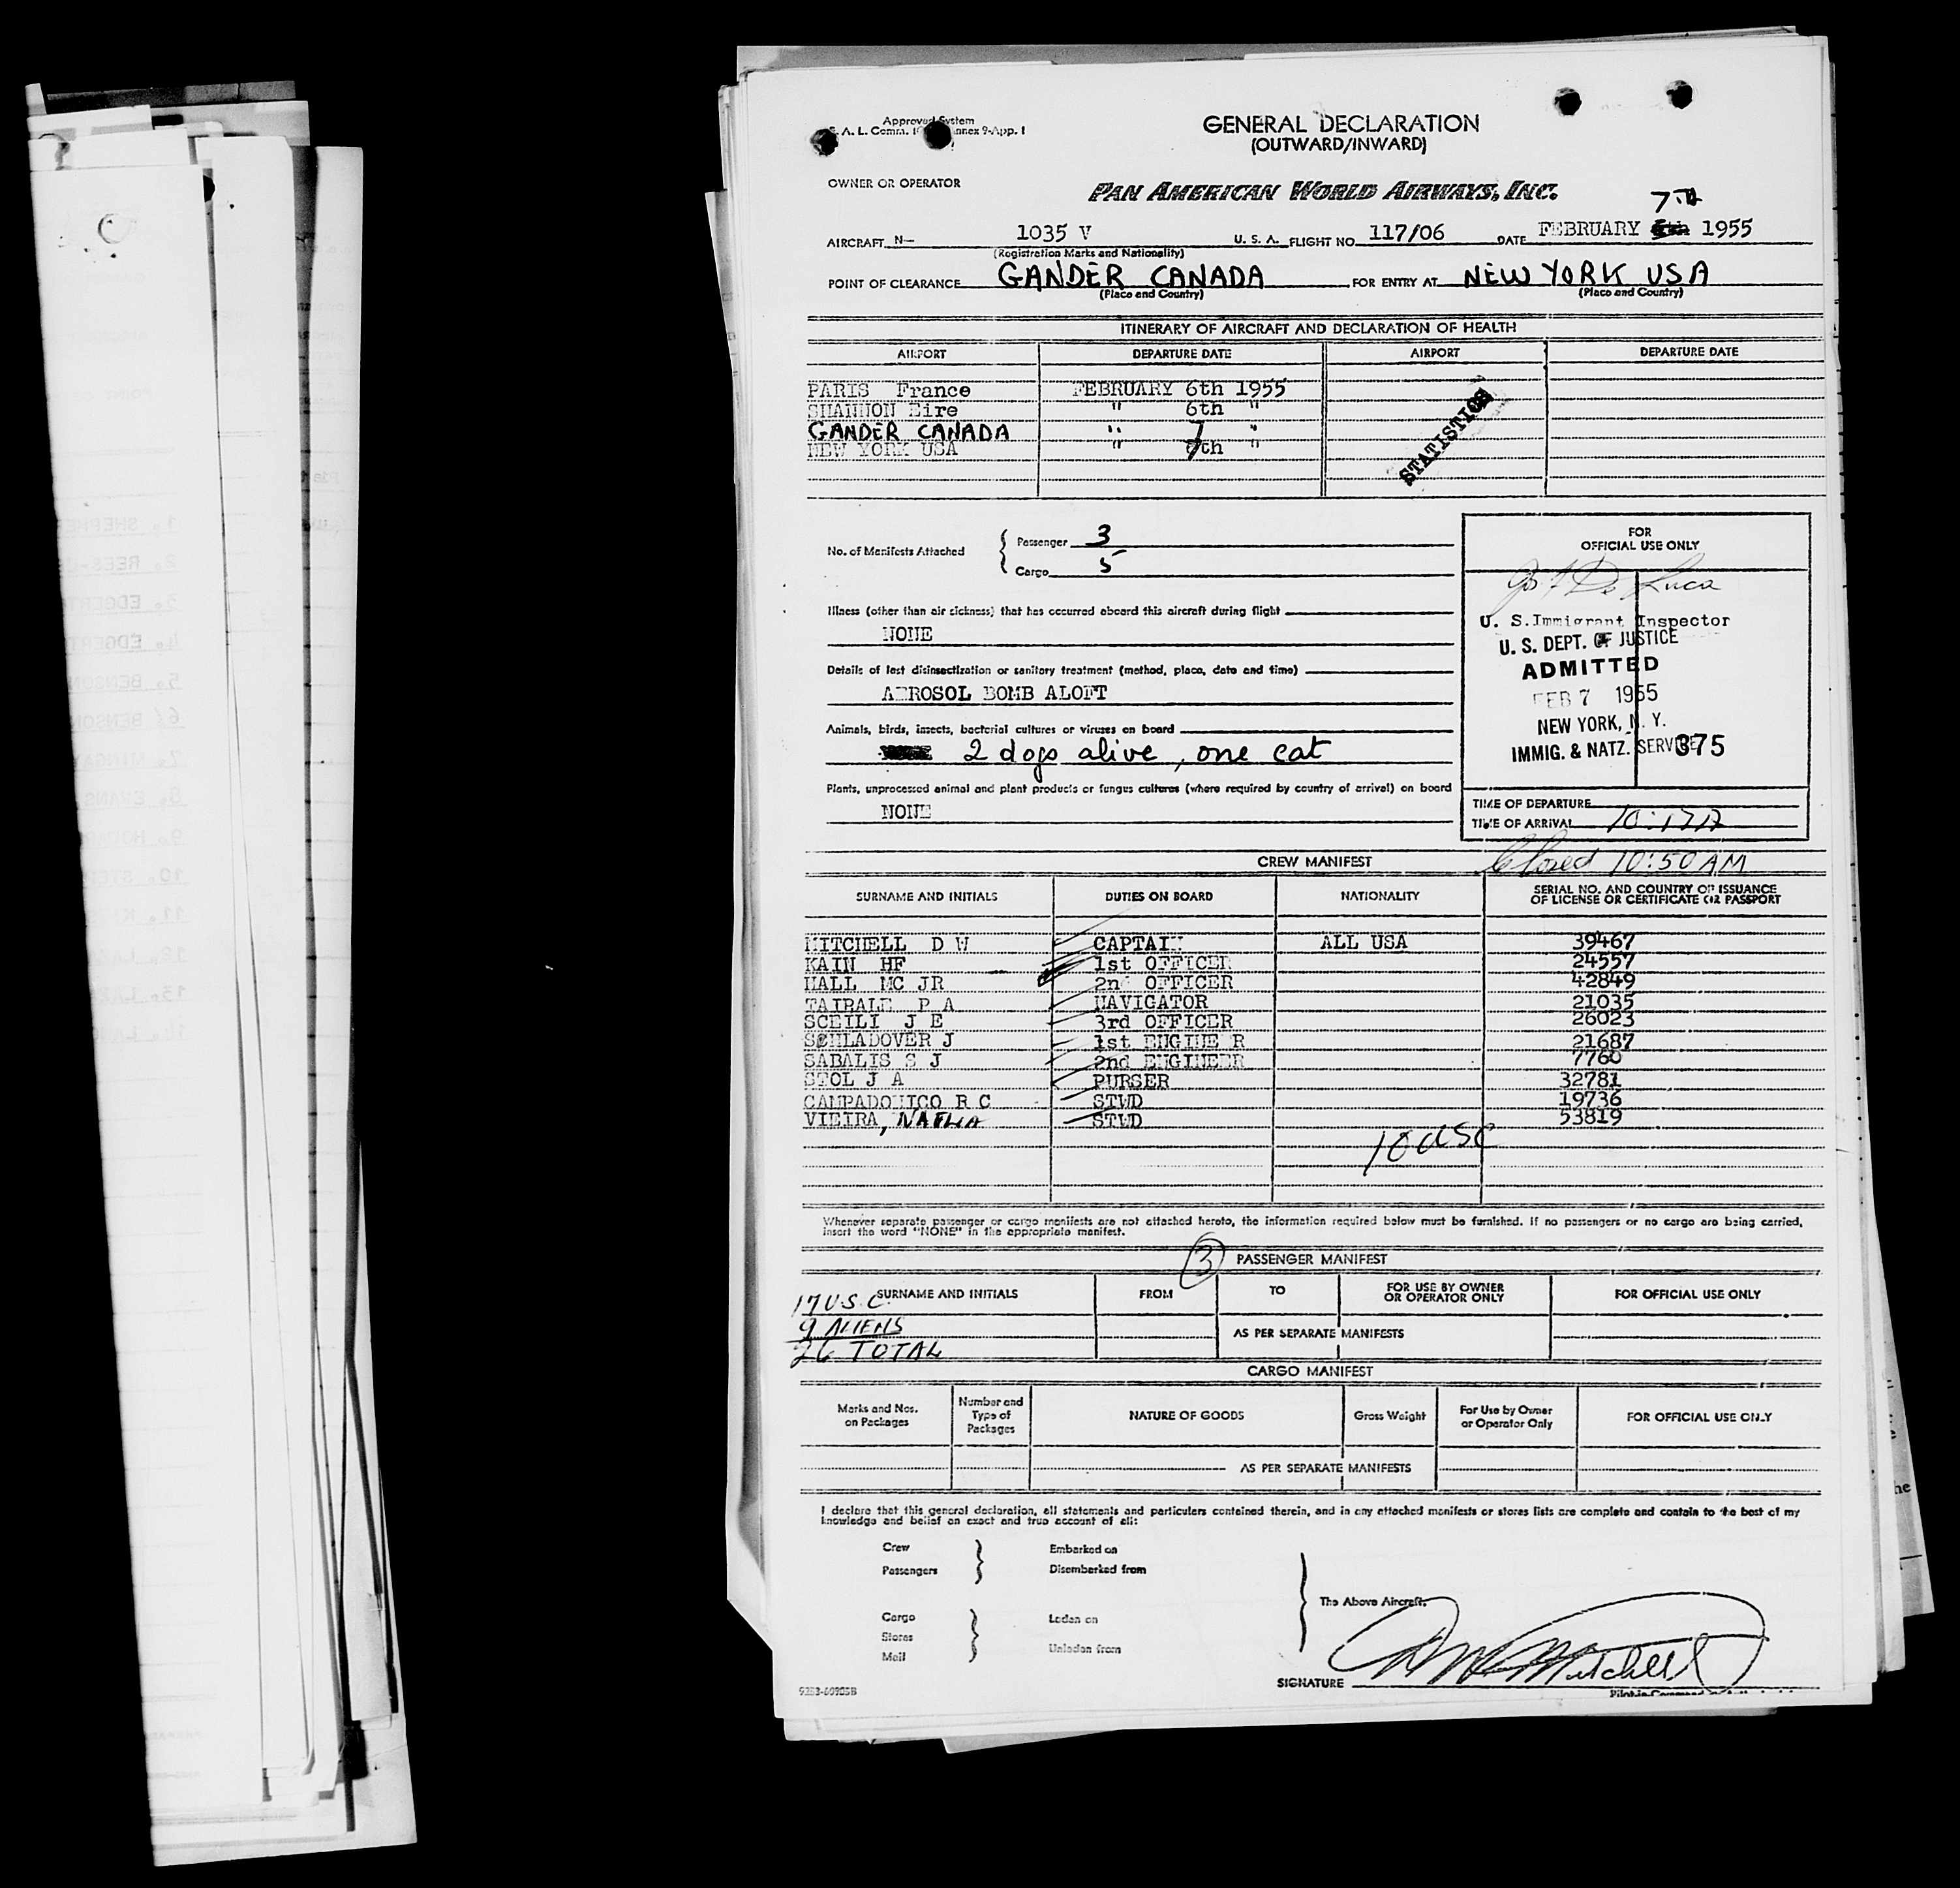 Approved System
A. L. Comm. Annex 9-App. 1
GENERAL DECLARATION
(OUTWARD/INWARD)
OWNER OR OPERATOR
PAN AMERICAN WORLD AIRWAYS, INC.
7th
AIRCRAFT N- 1035 V U. S. A. FLIGHT NO. 117/06 DATE FEBRUARY 1955
(Registration Marks and Nationality)
POINT OF CLEARANCE GANDER CANADA FOR ENTRY AT NEW YORK USA
(Place and Country) (Place and Country)
ITINERARY OF AIRCRAFT AND DECLARATION OF HEALTH
AIRPORT DEPARTURE DATE AIRPORT DEPARTURE DATE
PARIS France FEBRUARY 6th 1955
SHANNON Eire " 6th "
GANDER CANADA " 7 "
NEW YORK USA " th "
STATISTICS
No. of Manifests Attached
Passenger 3
Cargo 5
Illness (other than air sickness) that has occurred aboard this aircraft during flight
NONE
Details of last disinsectization or sanitary treatment (method, place, date and time)
AEROSOL BOMB ALOFT
Animals, birds, insects, bacterial cultures or viruses on board
2 dogs alive, one cat
Plants, unprocessed animal and plant products or fungus cultures (where required by country of arrival) on board
NONE
FOR
OFFICIAL USE ONLY
De Luca
U. S. Immigrant Inspector
U. S. DEPT. OF JUSTICE
ADMITTED
FEB 7 1955
NEW YORK, N. Y.
IMMIG. & NATZ. SERVICE 375
TIME OF DEPARTURE
TIME OF ARRIVAL 10:17A
Closed 10:50 AM
CREW MANIFEST
SURNAME AND INITIALS DUTIES ON BOARD NATIONALITY SERIAL NO. AND COUNTRY OF ISSUANCE
OF LICENSE OR CERTIFICATE OR PASSPORT
MITCHELL D W CAPTAIN ALL USA 39467
KAIN HF 1st OFFICER 24557
HALL MC JR 2nd OFFICER 42849
TAIBALE P A NAVIGATOR 21035
SCEILI J E 3rd OFFICER 26023
SCHLADOVER J 1st ENGINEER 21687
SABALIS S J 2nd ENGINEER 7760
STOL J A PURSER 32781
CAMPADONICO R C STWD 19736
VIEIRA, STWD 53819
10 USC
Whenever separate passenger or cargo manifests are not attached hereto, the information required below must be furnished. If no passengers or no cargo are being carried,
insert the word "NONE" in the appropriate manifest.
3 PASSENGER MANIFEST
SURNAME AND INITIALS FROM TO FOR USE BY OWNER
OR OPERATOR ONLY FOR OFFICIAL USE ONLY
17 U.S.C.
9 ALIENS
26 TOTAL
AS PER SEPARATE MANIFESTS
CARGO MANIFEST
Marks and Nos.
on Packages
Number and
Type of
Packages
NATURE OF GOODS
Gross Weight
For Use by Owner
or Operator Only
FOR OFFICIAL USE ONLY
AS PER SEPARATE MANIFESTS
I declare that this general declaration, all statements and particulars contained therein, and in any attached manifests or stores lists are complete and contain to the best of my
knowledge and belief an exact and true account of all:
Crew Embarked on
Passengers Disembarked from
The Above Aircraft.
Cargo Laden on
Stores
Mail Unladen from
SIGNATURE D W Mitchell
Pilot-in-Command
1. SHEPHER
2. REES-
3. EDGERT
4. EDGERT
5. BENSON
6. BENSON
7. MINGAY
8. EVANS
9. HOWAR
10. STE
11. KIN
12. LAK
13. LAK
14. LAN